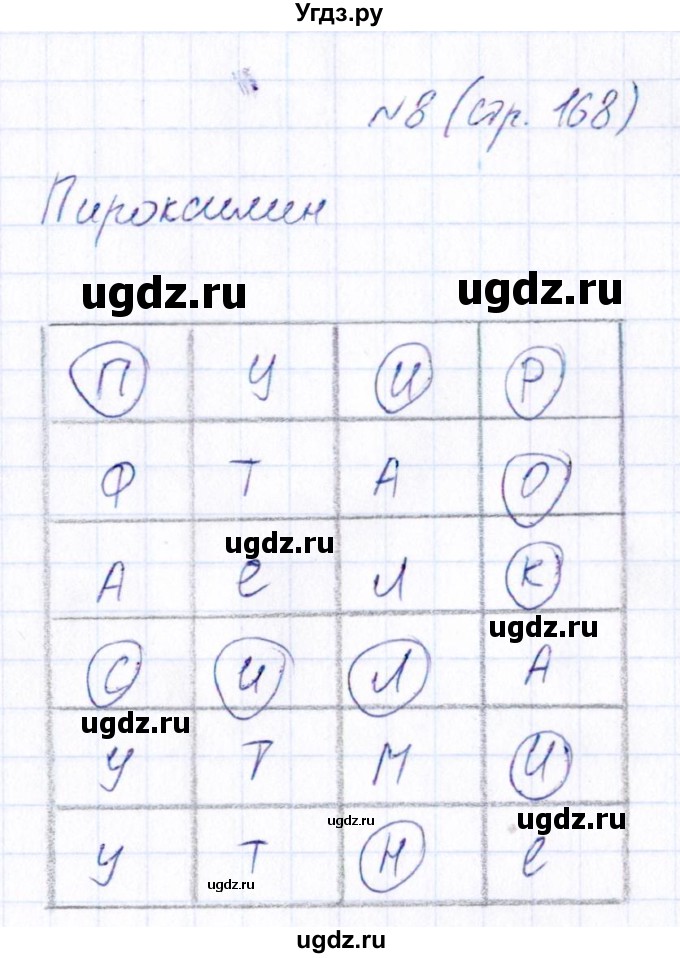 Угдз.ру
№8 (стр. 168)
Пироксилин
ugdz.ru ugdz.ru
П У И Р
Ф Т А О
ugdz.ru
А е Л К
ugdz.ru
С И Л А
ugdz.ru
У Т М И
ugdz.ru ugdz.ru
У Т Н е
ugdz.ru
ugdz.ru